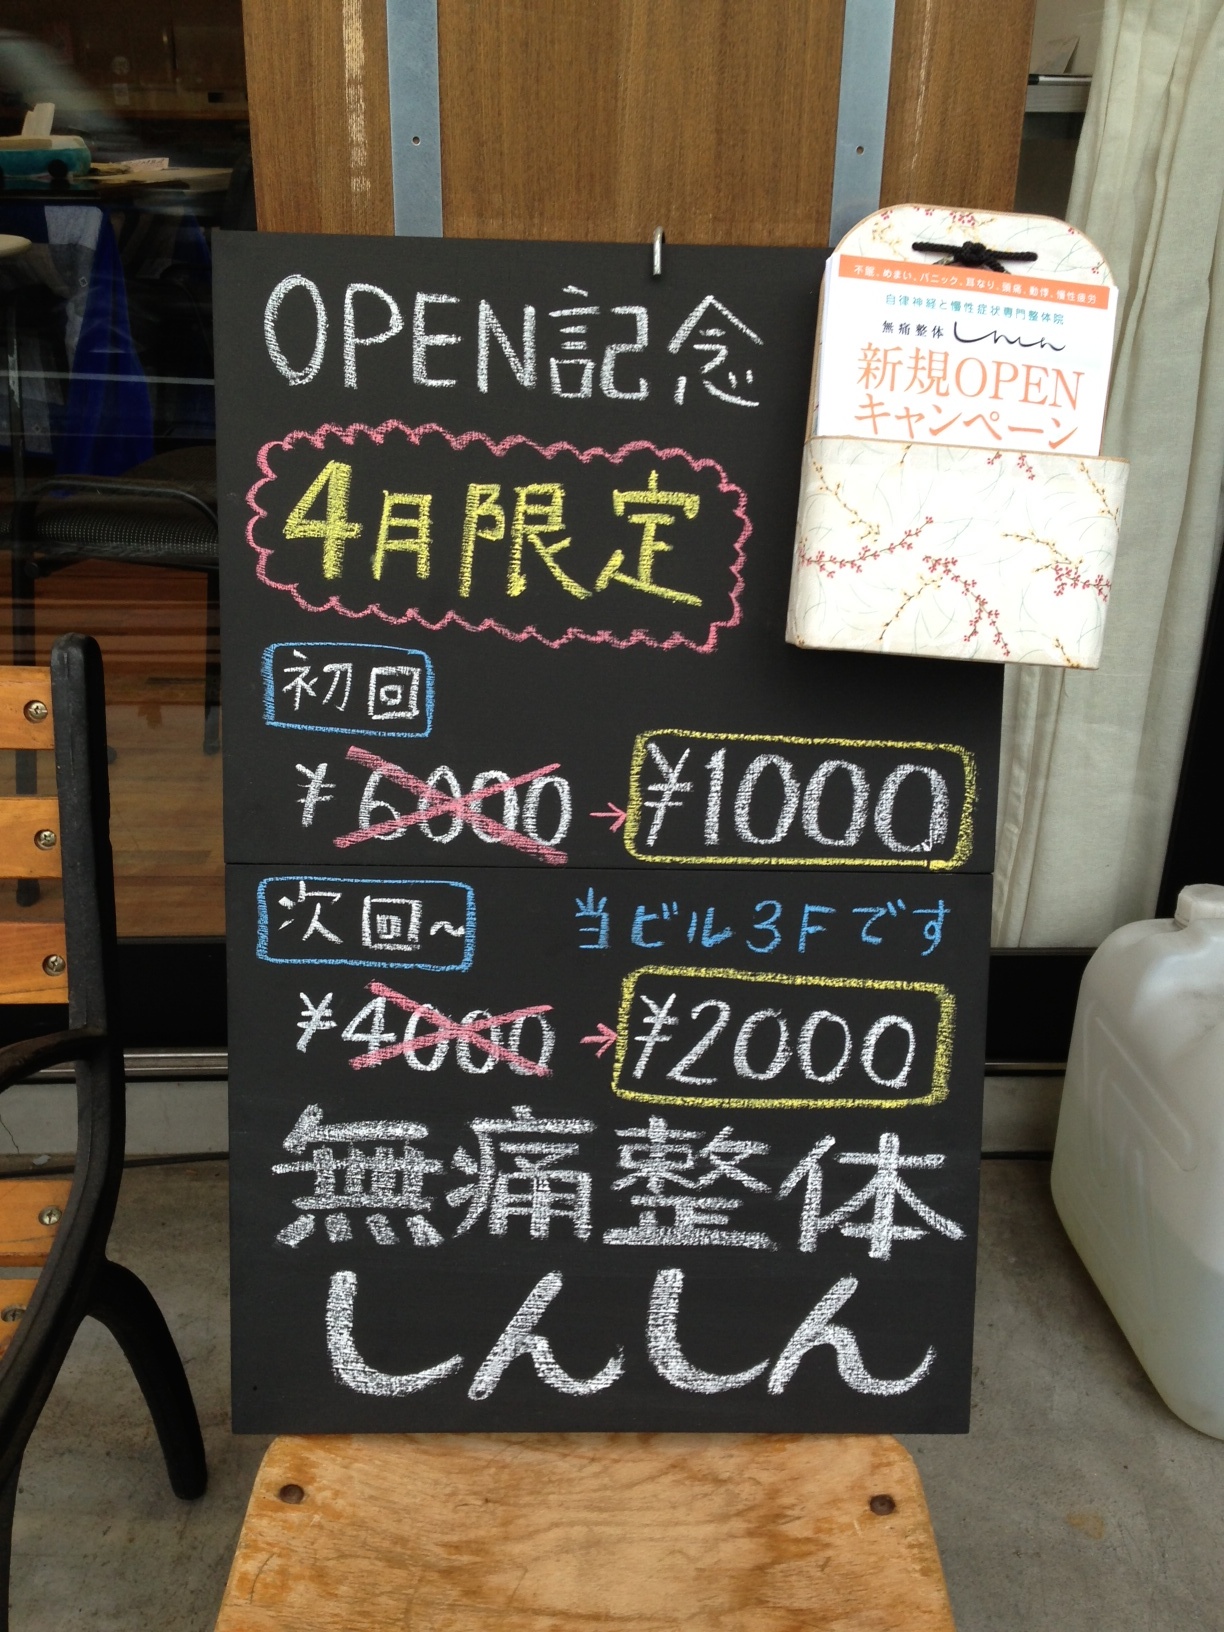 OPEN記念
4月限定
初回
¥6000→¥1000
次回~
当ビル3Fです
¥4000→¥2000
無痛整体
しんしん
不眠、めまい、パニック、耳なり、頭痛、動悸、慢性疲労
自律神経と慢性症状専門整体院
無痛整体 しんしん
新規OPEN
キャンペーン